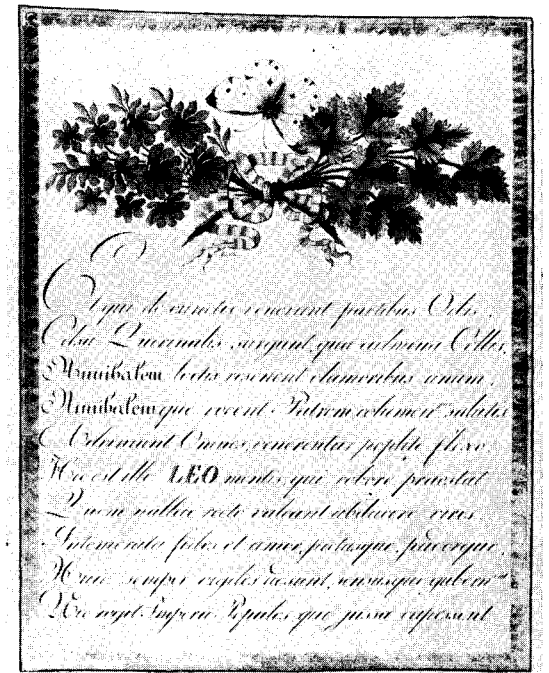 Et qui de cunctis venerant partibus Orbis,
Celsa Quirinalis surgunt qua culmina Collis,
Annibalem resonent clamoribus unum,
Annibalemque vocent Patrem salutis
Adveniant Omnes, venerentur poplite flexo
Hic est ille LEO mentis qui robore praestat
Quem nullae recto valeant abducere vires
Intemerata fides et amor, pietasque,
Huic semper vigiles adsunt, sensusque
Hic reget Imperio Populos, jussa capessent